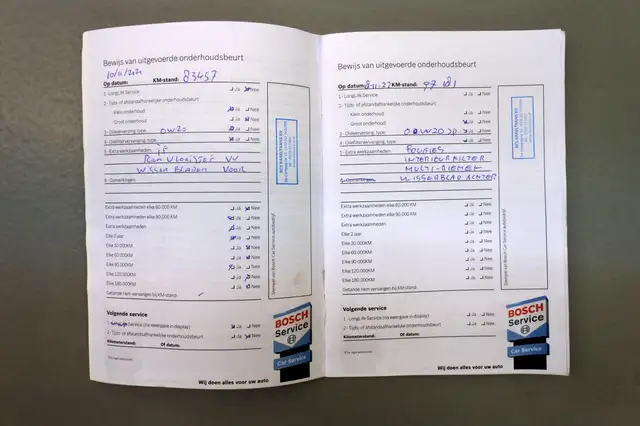 Bewijs van uitgevoerde onderhoudsbeurt
Op datum: KM-stand: 83457
1- LongLife Service Ja Nee
2- Tijds-of afstandsafhankelijke onderhoudsbeurt
Klein onderhoud Ja Nee
Groot onderhoud Ja Nee
3- Olieverversing, type: 0W20 Ja Nee
Ja Nee
5- Extra werkzaamheden:
Wisser Bladen Voor
6- Opmerkingen:
Extra werkzaamheden elke 60.000 KM Ja Nee
Extra werkzaamheden elke 90.000 KM Ja Nee
Extra werkzaamheden Ja Nee
Elke 2 jaar Ja Nee
Elke 30.000KM Ja Nee
Elke 60.000KM Ja Nee
Elke 90.000KM Ja Nee
Elke 120.000KM Ja Nee
Elke 180.000KM Ja Nee
Getande riem vervangen bij KM-stand:
Volgende service
Service (na weergave in display) Ja Nee
2- Tijds-of afstandsafhankelijke onderhoudsbeurt Ja Nee
Kilometerstand: Of datum:
BOSCH
Service
Car Service
Wij doen alles voor uw auto
Bewijs van uitgevoerde onderhoudsbeurt
Op datum: KM-stand:
1- LongLife Service Ja Nee
2- Tijds-of afstandsafhankelijke onderhoudsbeurt
Klein onderhoud Ja Nee
Groot onderhoud Ja Nee
3- Olieverversing, type: Ja Nee
Ja Nee
5- Extra werkzaamheden:
INTERIEURFILTER
MULTI-RIEMEN
6- Opmerkingen: WISSERBLAD ACHTER
Extra werkzaamheden elke 60.000 KM Ja Nee
Extra werkzaamheden elke 90.000KM Ja Nee
Extra werkzaamheden Ja Nee
Elke 2 jaar Ja Nee
Elke 30.000KM Ja Nee
Elke 60.000KM Ja Nee
Elke 90.000KM Ja Nee
Elke 120.000KM Ja Nee
Elke 180.000KM Ja Nee
Getande riem vervangen bij KM-stand:
Volgende service
1- LongLife Service (na weergave in display) Ja Nee
2- Tijds-of afstandsafhankelijke onderhoudsbeurt Ja Nee
Kilometerstand: Of datum:
BOSCH
Service
Car Service
Wij doen alles voor uw auto